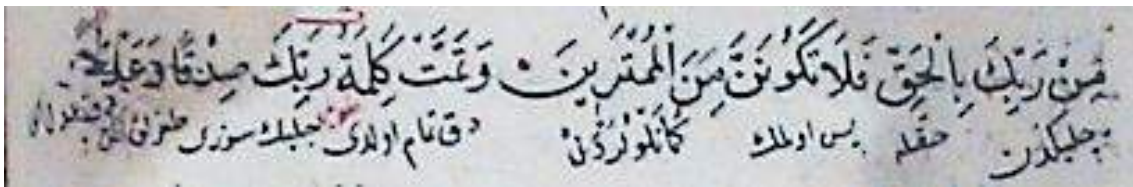 مِنْ رَبِّكَ بِالْحَقِّ فَلَا تَكُونَنَّ مِنَ الْمُمْتَرِينَ وَتَمَّتْ كَلِمَةُ رَبِّكَ صِدْقًا وَعَدْلًا
جلبكدن حقله پس اولمك كمانلولردن دقی تمام اولدی جلبك سوزی